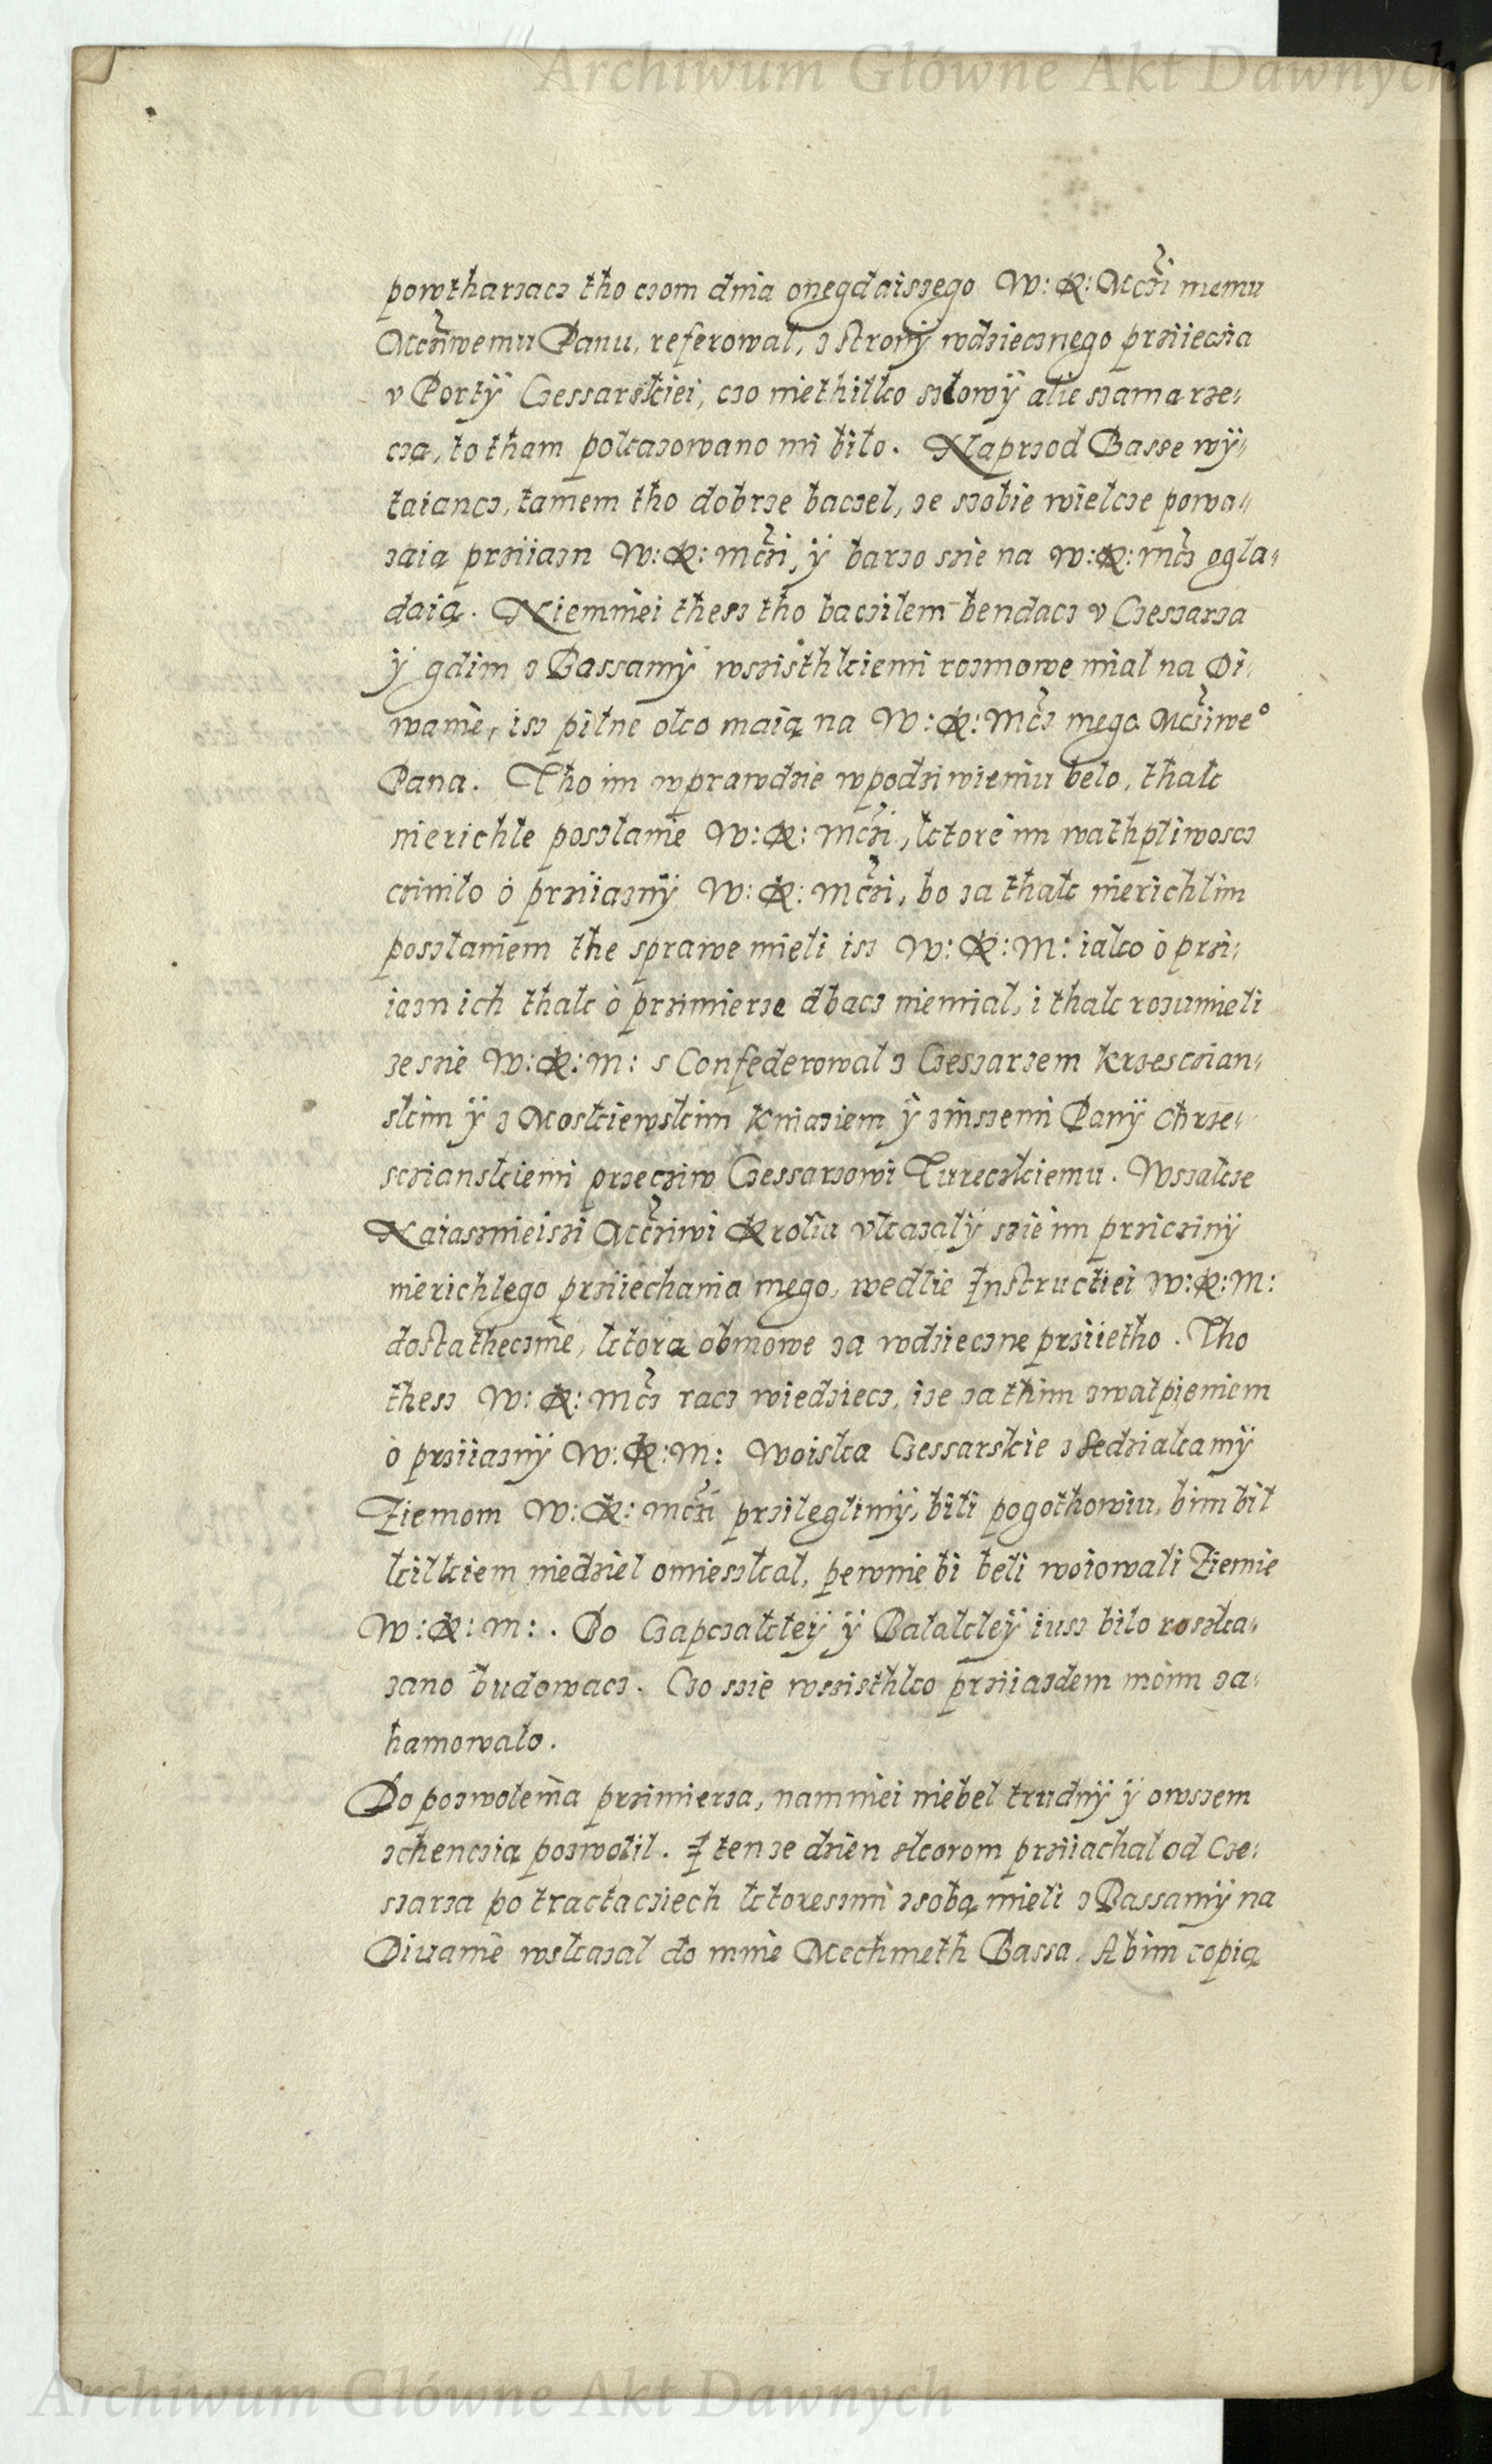 Archiwum Główne Akt Dawnych
powtharzacz tho czom dnia onegdaiszego W: K: Mczi memu
Mcziwemu Panu, referował, z strony wdziecznego prziieczia
v Porty Czessarskiei, czo niethilko szlowÿ alie szama rze-
cza, to tham pokazowano mi bilo. Naprzod Basse wÿ-
taiancz, tamem tho dobrze baczel, ze szobie wielcze powa-
zaia prziiazn W: K: Mczi, ÿ barzo szie na W: K: Mcz ogla-
daią. Niemniei thesz tho baczilem bendacz v Czeszarza
ÿ gdim z Bassamÿ wszisthkiemi rozmowe mial na Di-
wanie, isz pilne oko maią na W: K: Mcz mego Mcziwe°
Pana. Tho im wprawdzie wpodziwieniu belo, thak
nierichle poszlanie W: K: Mczi, ktore im wathpliwoscz
czinilo o prziiaznÿ W: K: Mczi, bo za thak nierichlim
poszlaniem the sprawe mieli isz W: K: M: iako o przi-
iazn ich thak o przimierze dbacz niemial, i thak rozumieli
ze szie W: K: M: s Confederowal z Czeszarzem Krzesczian-
skim ÿ z Moskiewskim Kniaziem ÿ zinszemi Panÿ Chrze-
scziansкiemi przecziw Czessarzowi Tureczkiemu. Wszakze
Naiasznieiszi Mcziwi Kroliu vkazalÿ szie im prziczinÿ
nierichlego prziiechania mego, wedlie Instructiei W: K: M:
dostathecznie, ktora obmowe za wdzieczne prziietho. Tho
thesz W: K: Mcz racz wiedziecz, ize za thim zwatpieniem
o prziiaznÿ W: K: M: Woiska Czessarskie z Sedziakamÿ
Ziemom W: K: Mczi przileglimÿ, bili pogothowiu, bim bil
kilkiem niedziel omieszkal, pewnie bi beli woiowali Ziemie
W: K: M: . Do Czapczakleÿ ÿ Balakleÿ iusz bilo roszka-
zano budowacz. Czo szie wszisthko prziiazdem moim za-
hamowalo.
Do pozwolenia przimierza, namniei niebel trudnÿ ÿ owszem
zchenczia pozwolil. I ten ze dzien skorom prziiachal od Cze-
szarza po tractacziech ktoreszmi zsobą mieli z Bassamÿ na
Diuanie wskazal do mnie Mechmeth Bassa. Abim copią
Archiwum Główne Akt Dawnych